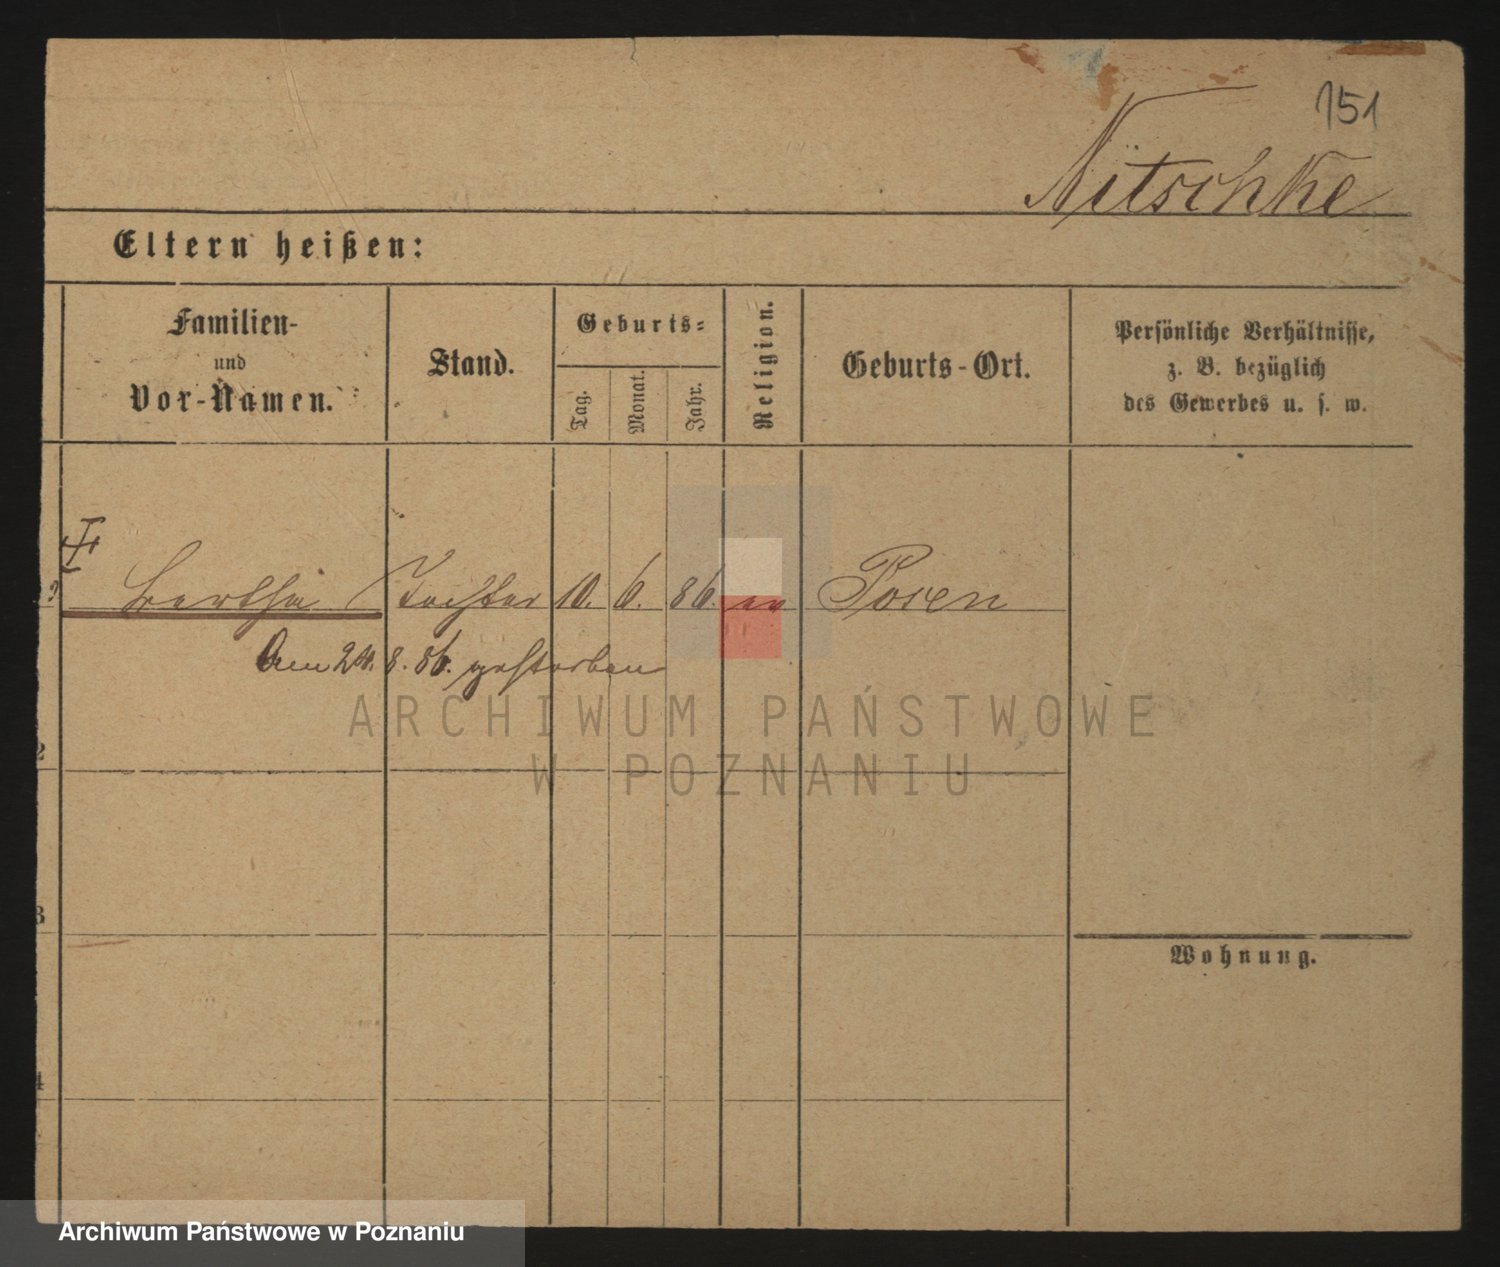 151
Nitschke
Eltern heißen:
Familien-
und
Vor-Namen.
Stand.
Geburts-
Tag.
Monat.
Jahr.
Religion.
Geburts-Ort.
Persönliche Verhältnisse,
z. B. bezüglich
des Gewerbes u. s. w.
Bertha Tochter 10. 6. 86. ev Posen
Am 24. 8. 86. gestorben
2
3
4
Wohnung.
ARCHIWUM PAŃSTWOWE
W POZNANIU
Archiwum Państwowe w Poznaniu